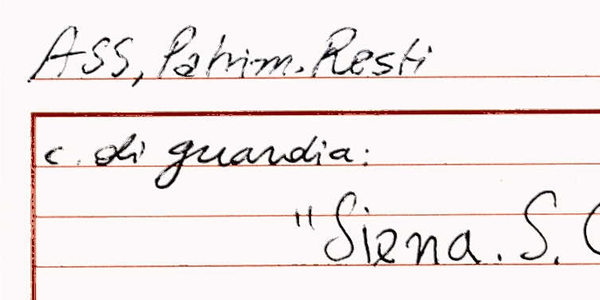 Ass, Patrim. Resti
c. di guardia:
"Siena. S.